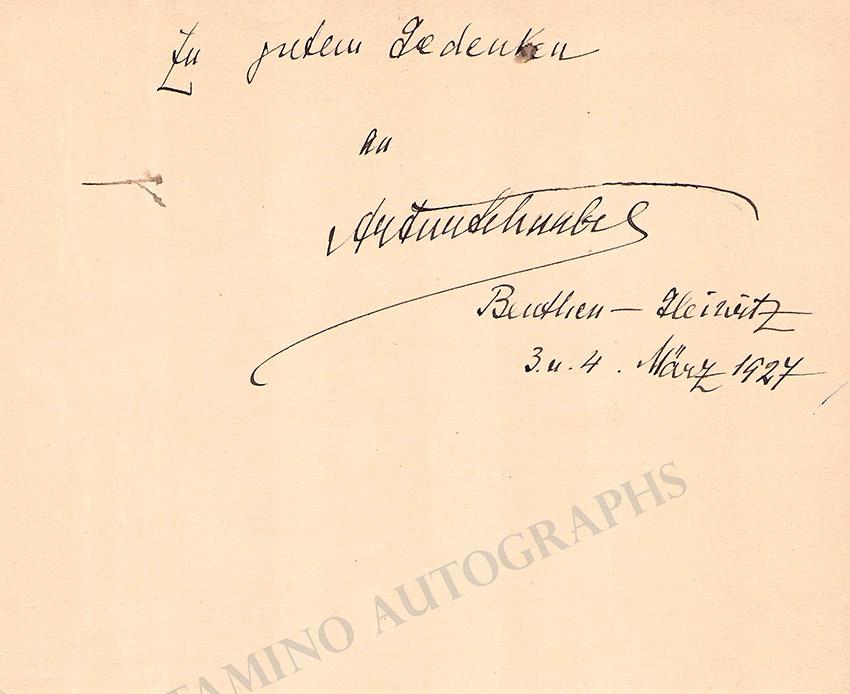 Zu gutem Gedenken
an
Artur Schnabel
Beuthen – Gleiwitz
3. u. 4. März 1927
TAMINO AUTOGRAPHS